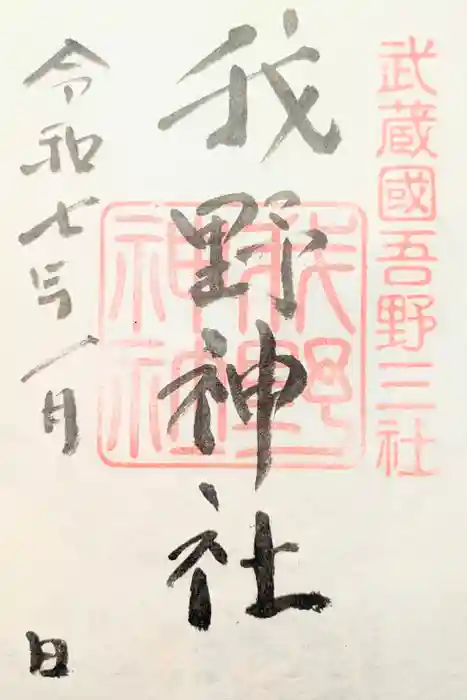 武蔵國吾野三社
我野神社
我野神社
令和七年一月 日